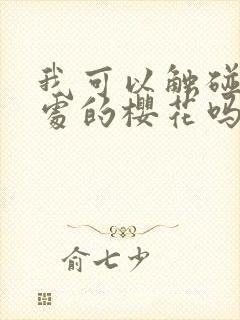 我可以触碰
处的樱花吗
俞七少